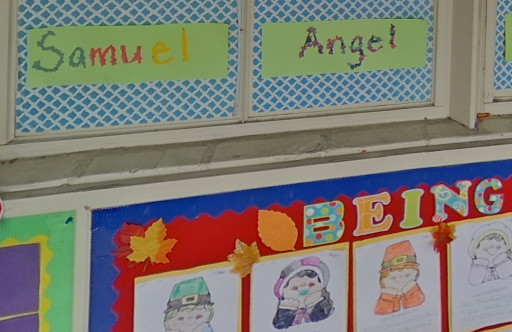 Samuel
Angel
BEING